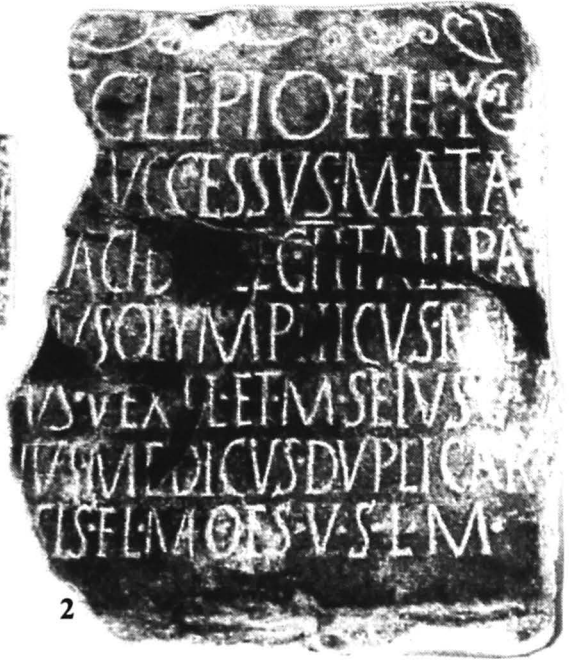 CLEPIO·ET·HYG
VCCESSVS·M·ATA
LEG·ITAL·I·PA
VSOLYMPHICVS
VS·VEX L·ET·M·SEIVS
VSMEDICVS·DVPLICAR
CIS·FL·MOES·V·S·L·M·
2